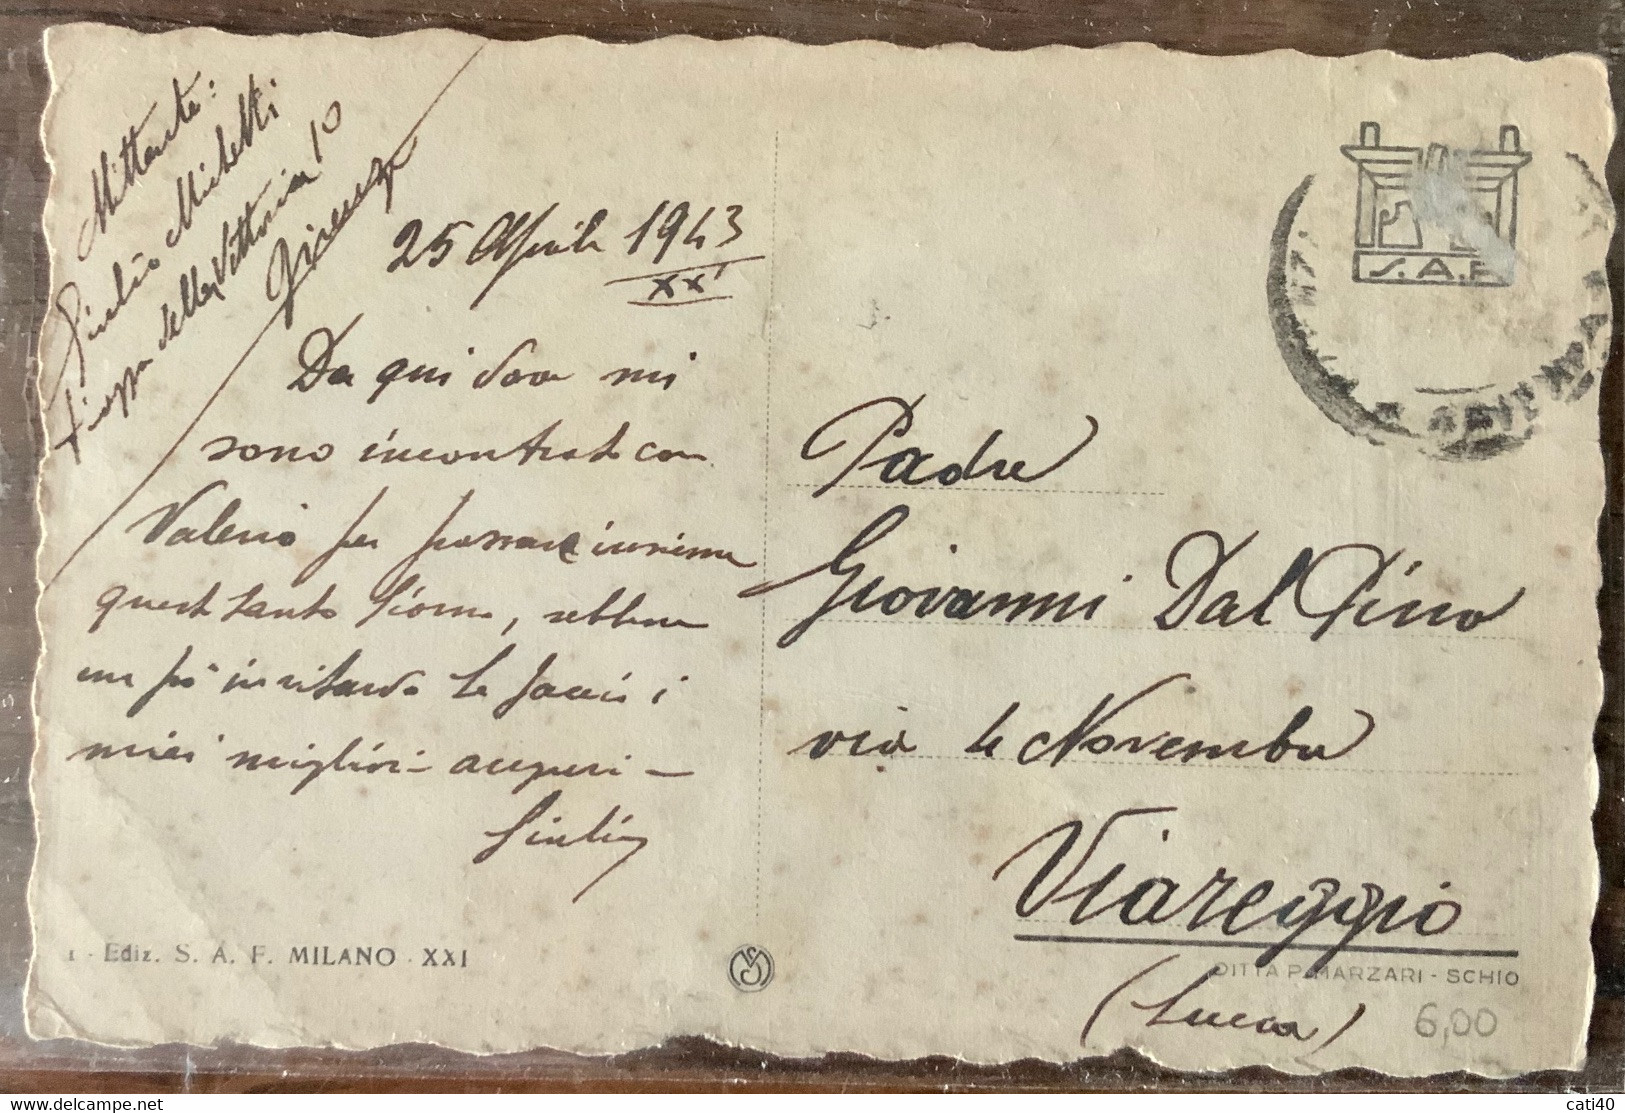 Mittente:
Giulio Michetti
Piazza della Vittoria 10
Firenze
25 Aprile 1943
XXI
Da qui dove mi
sono incontrato con
Valerio per passare insieme
quest santo giorno, sebbene
un pò in ritardo le faccio i
miei migliori auguri -
Giulio
S.A.F.
Padre
Giovanni Dal Pino
via 4 Novembre
Viareggio
(Lucca)
1 - Ediz. S. A. F. MILANO - XXI
DITTA P. MARZARI - SCHIO
6,00
cati40